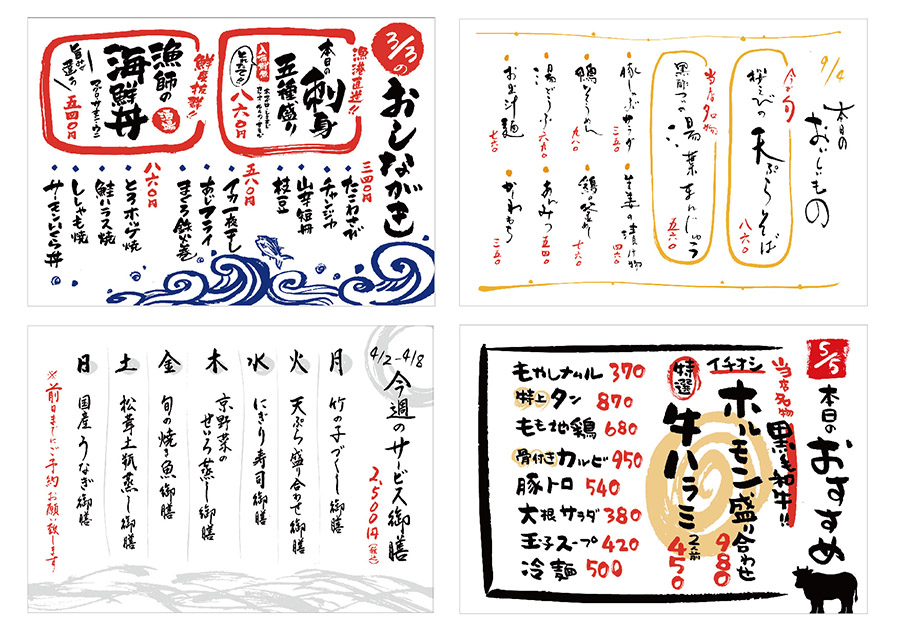 3/3の
おしながき
漁港直送!!
本日の
刺身
五種盛り
入荷鮮魚
八六〇円
鮮度抜群!!
漁師の
海鮮丼
五四〇円
三四〇円
たこわさび
チャンジャ
山芋短冊
枝豆
五八〇円
イカ一夜干し
あじフライ
まぐろ鉄火巻
八六〇円
とろホッケ焼
鮭ハラス焼
ししゃも焼
サーモンいくら丼
9/4
本日の
おいしいもの
今が旬
桜えびの
天ぷらそば
八六〇
当店名物
黒酢つつの
湯葉まんじゅう
五六〇
豚しゃぶサラダ
三五〇
鴨そうめん
九八〇
湯どうふ
六六〇
お出汁麺
七六〇
生姜の漬け物
四六〇
七六〇
あんみつ
五四〇
わらびもち
三五〇
4/2-4/8
今週のサービス御膳
2,500円(税込)
月
竹の子づくし御膳
火
天ぷら盛り合わせ御膳
水
にぎり寿司御膳
木
京野菜の
せいろ蒸し御膳
金
旬の焼き魚御膳
土
松茸土瓶蒸し御膳
日
国産うなぎ御膳
※前日までにご予約お願い致します!
5/5
本日の
おすすめ
当店名物
黒毛和牛!!
イチオシ
ホルモン盛り合わせ
980
特選
牛ハラミ
2人前
450
もやしナムル 370
特上タン 870
もも地鶏 680
骨付きカルビ 950
豚トロ 540
大根サラダ 380
玉子スープ 420
冷麺 500